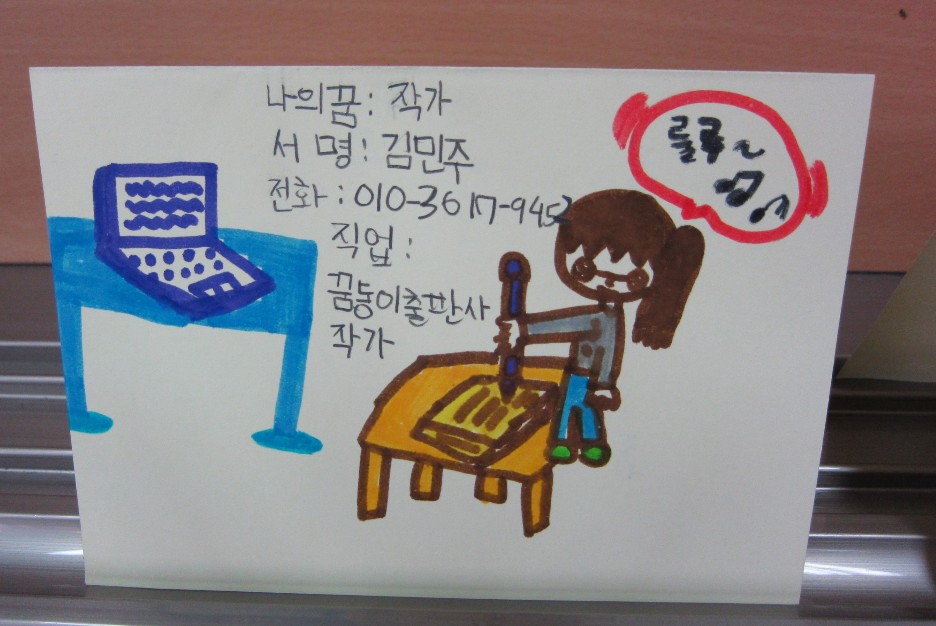 나의꿈: 작가
서 명: 김민주
전화: 010-3617-9452
직업:
꿈둥이출판사
작가
룰루~